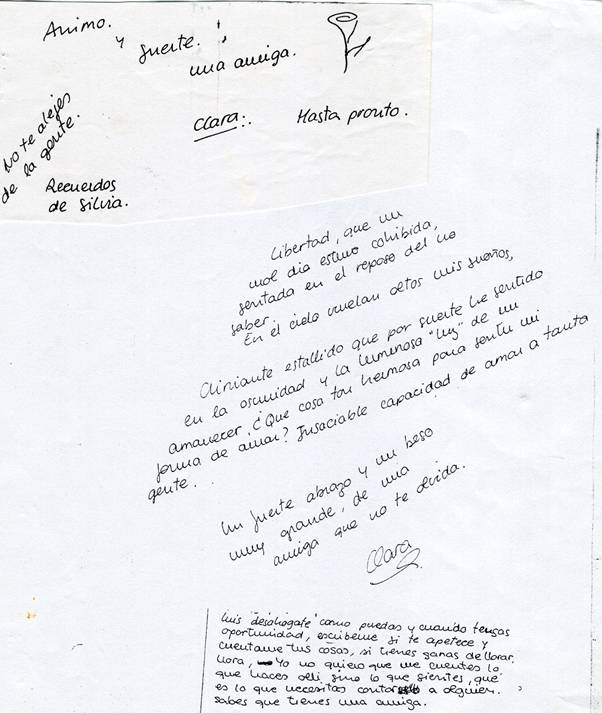 Animo.
y suerte.
una amiga.
Clara:.
Hasta pronto.
No te alejes
de la gente.
Recuerdos
de Silvia.
Libertad, que un
mal dia estuvo cohibida,
sentada en el reposo del no
saber.
En el cielo vuelan altos mis sueños,
estallido que por suerte he sentido
en la oscuridad y la luminosa "luz" de un
amanecer. ¿Que cosa tan hermosa para sentir mi
forma de amar? Insaciable capacidad de amar a tanta
gente..
Un fuerte abrazo y un beso
muy grande, de una
amiga que no te olvida.
Clara
Luis "desahogate" como puedas y cuando tengas
oportunidad, escribeme si te apetece y
cuentame tus cosas, si tienes ganas de llorar,
llora, Yo no quiero que me cuentes lo
que haces alli, sino lo que sientes, que
es lo que necesitas contar a alguien.
sabes que tienes una amiga.